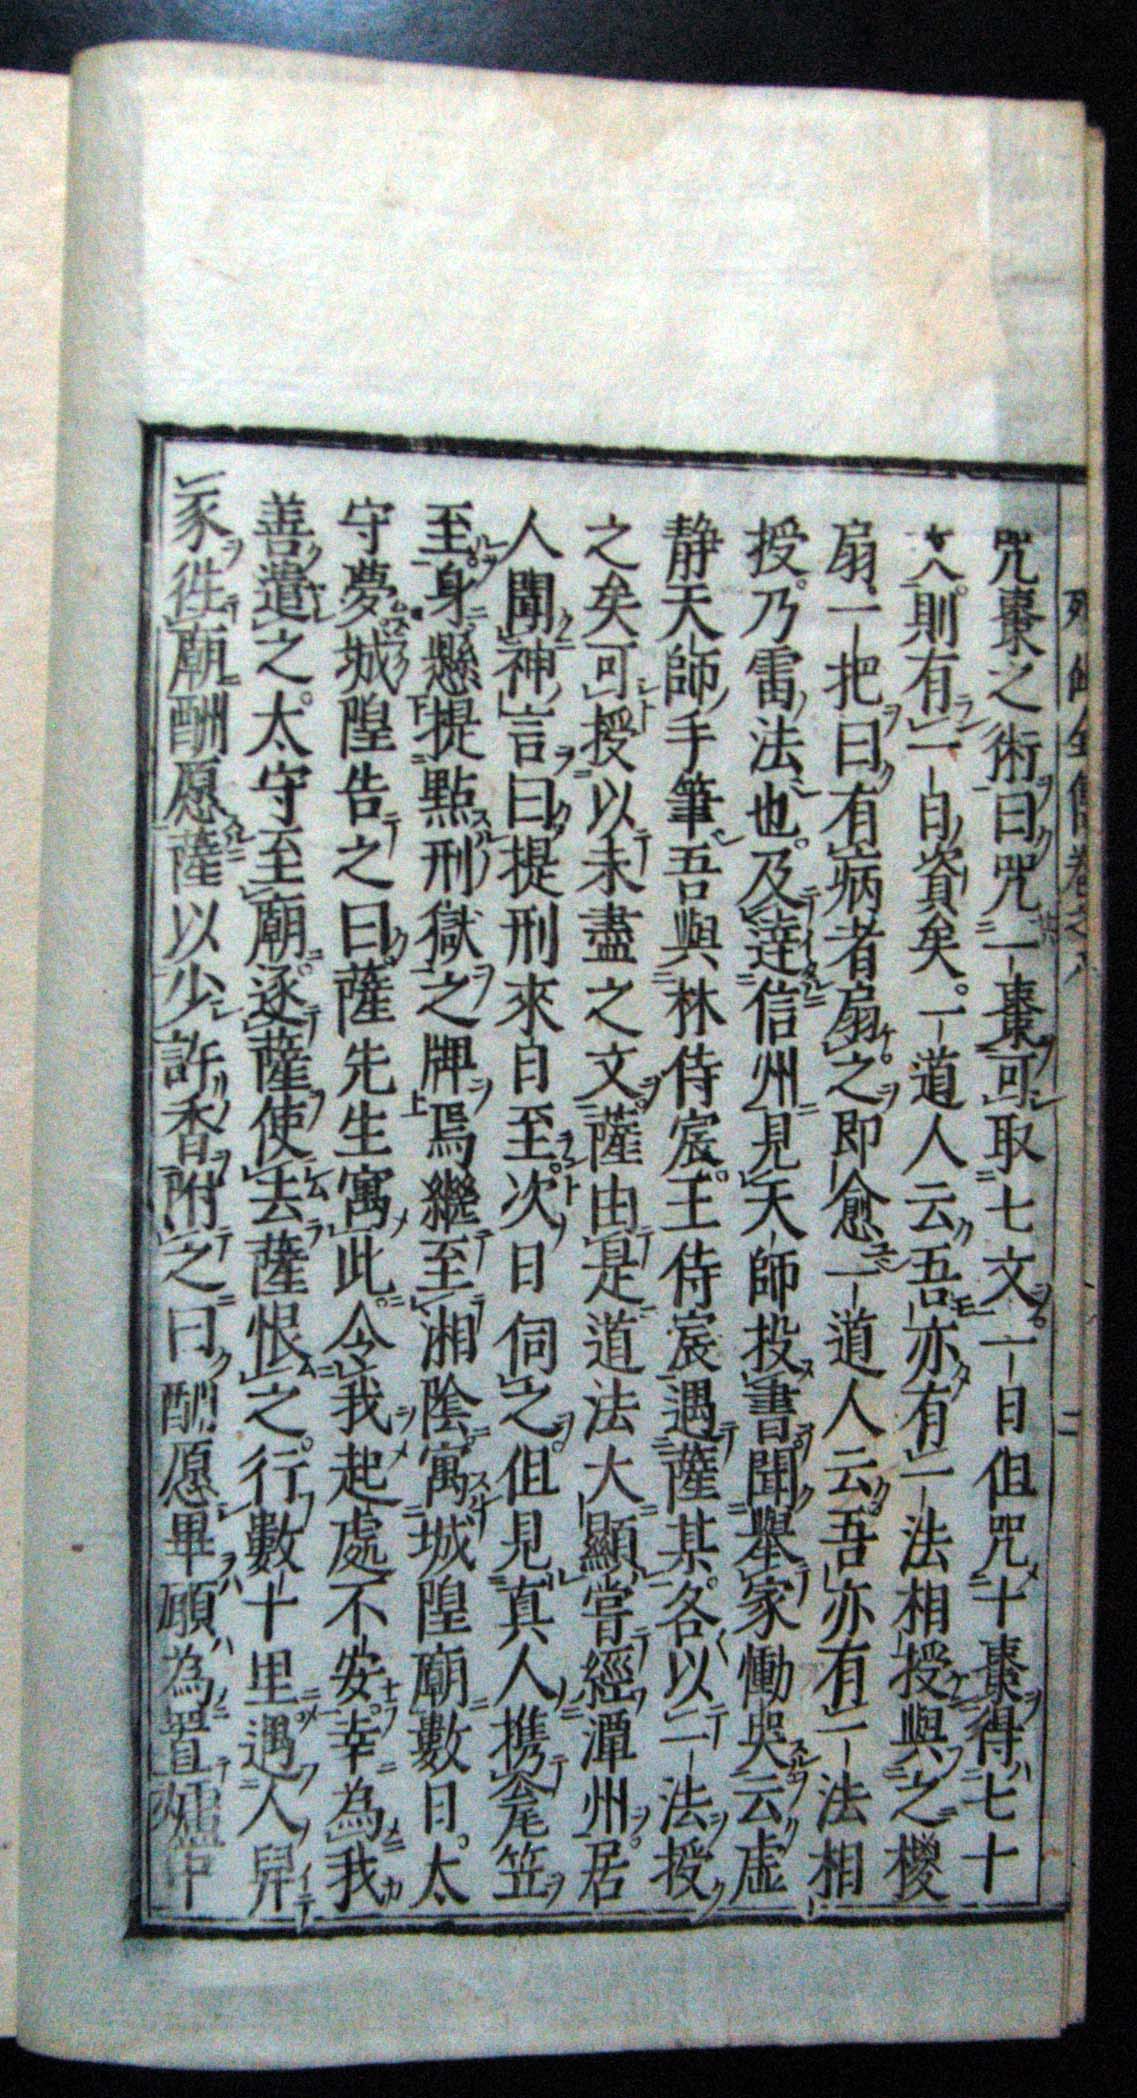 咒棗之術曰咒一棗可取七文一日但咒十棗得七十
文則有一日資矣一道人云吾亦有一法相授與之椶
扇一把曰有病者扇之即愈一道人云吾亦有一法相
授乃雷法也及達信州見天師投書聞舉家慟哭云虛
静天師手筆吾與林侍宸王侍宸遇薩某各以一法授
之矣可授以未盡之文薩由是道法大顯嘗經潭州居
人聞神言曰提刑來自至次日伺之但見真人携瓮笠
至身懸提點刑獄之牌焉繼至湘陰寓城隍廟數日太
守夢城隍告之曰薩先生寓此令我起處不安幸為我
善遣之太守至廟逐薩使去薩恨之行數十里遇人舁
豕徃廟酬愿薩以少許香附之曰酬愿畢願為置爐中